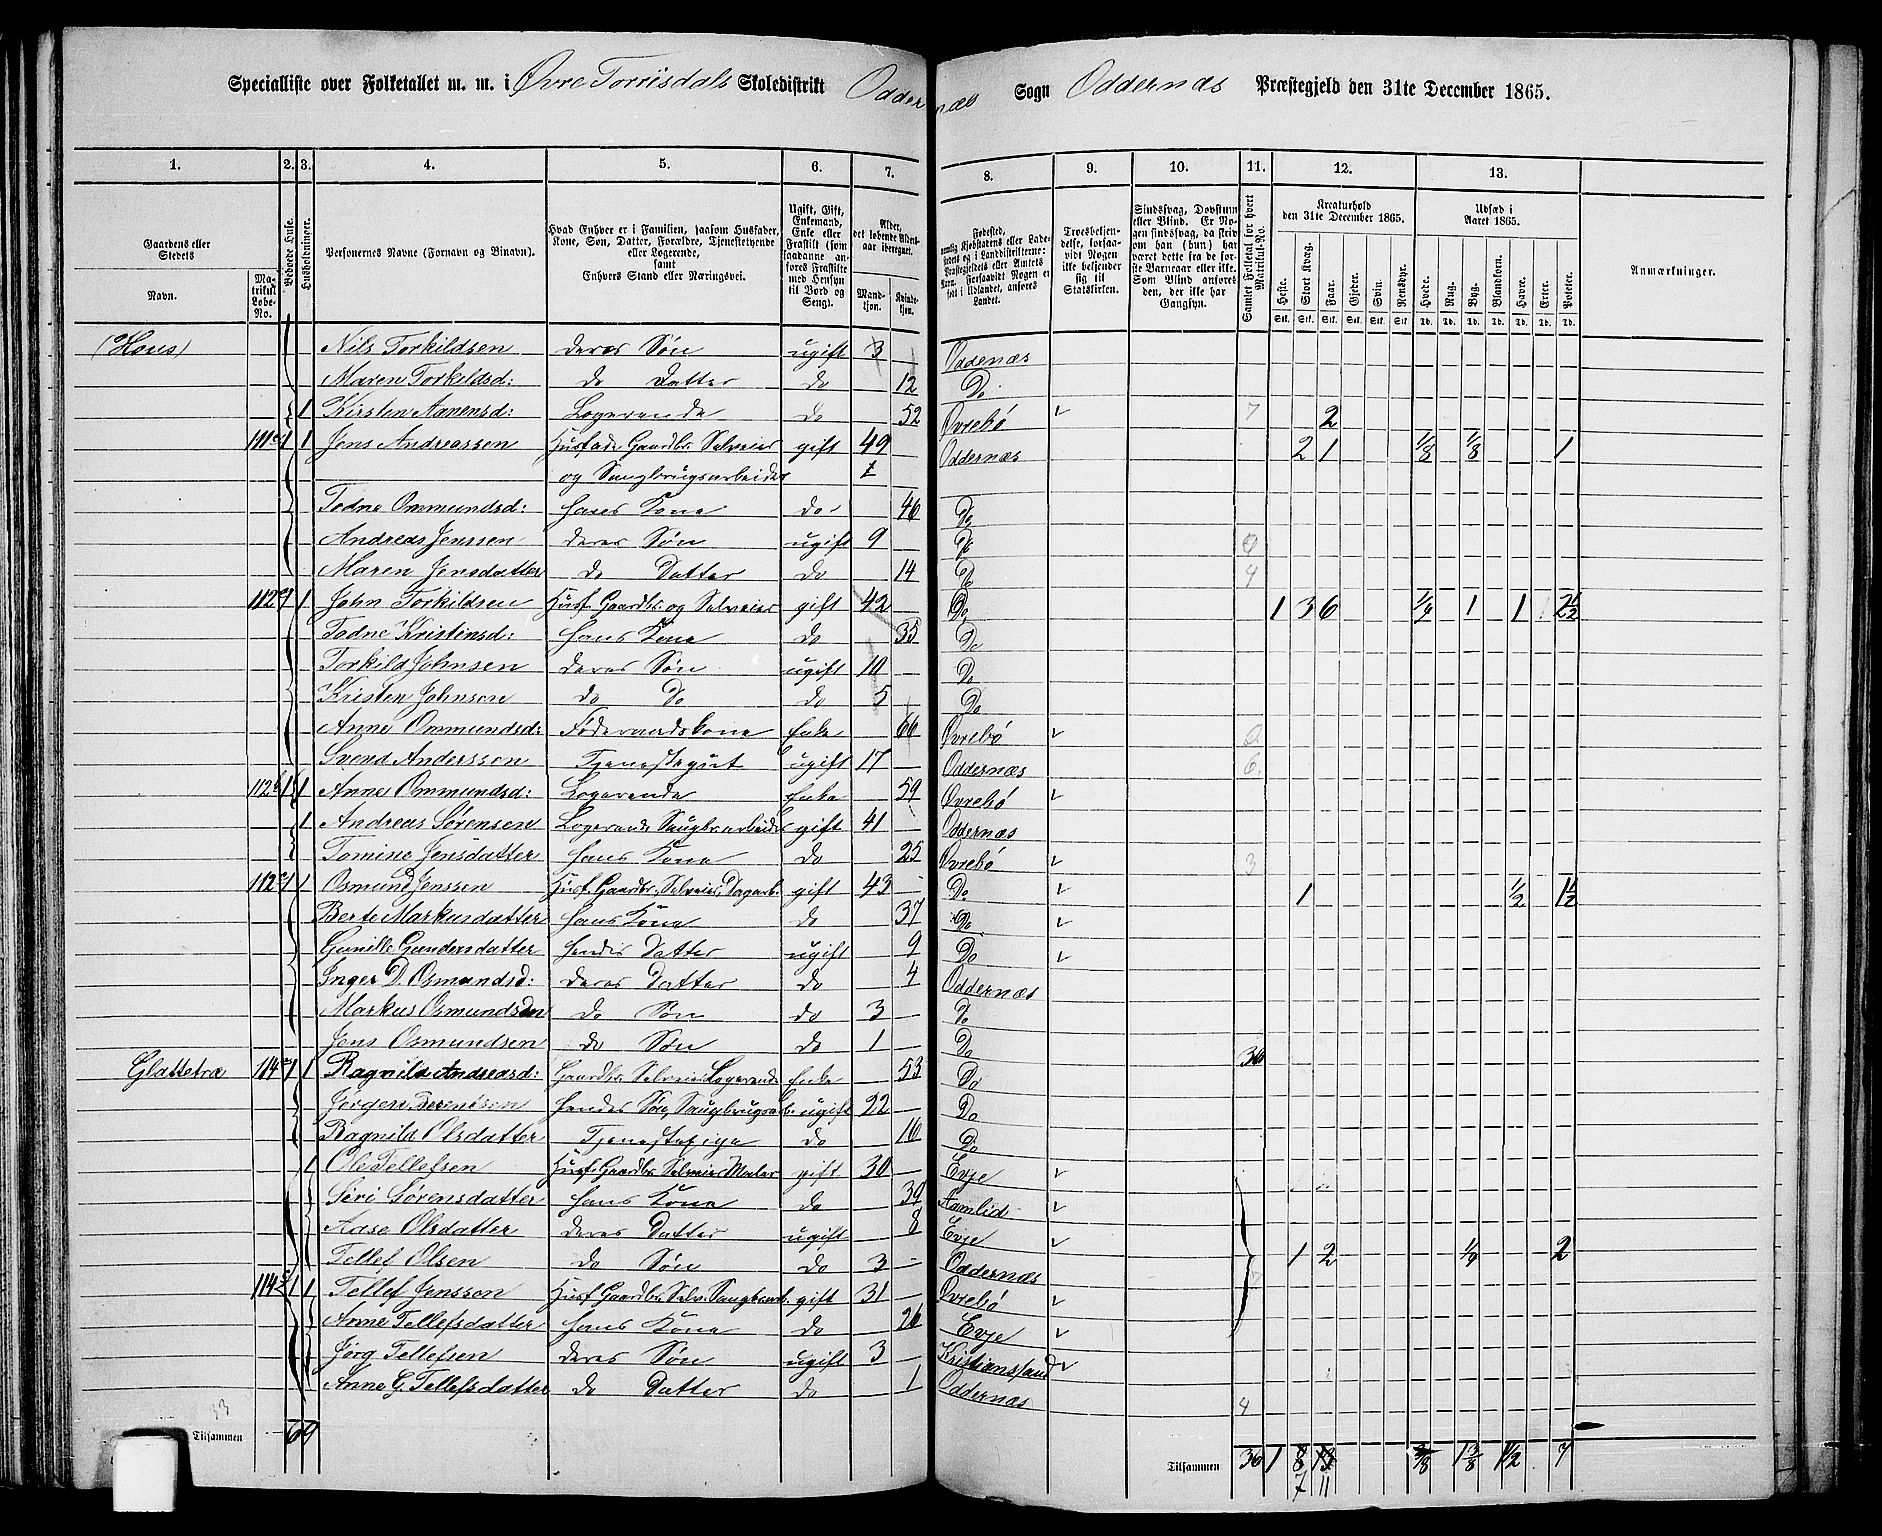 Specialliste over Folketallet m. m. i Øvre Torrisdals Skoledistrikt Oddernæs Sogn Oddernæs Præstegjeld den 31te December 1865.
1. 2. 3. 4. 5. 6. 7. 8. 9. 10. 11. 12. 13.
Gaardens eller Stedets Navn. Matrikul Løbe-No. Beboede Huse. Husholdninger. Personernes Navne (Fornavn og Binavn). Hvad Enhver er i Familien, saasom Husfader, Kone, Søn, Datter, Forældre, Tjenestetyende eller Logerende, samt Enhvers Stand eller Næringsvei. Ugift, Gift, Enkemand, Enke eller Fraskilt (som saadanne anføres Fraskilte med Hensyn til Bord og Seng). Alder, det løbende Alders-aar iberegnet. Mandkjøn. Kvindekjøn. Anmærkninger.
Kreaturhold den 31te December 1865. Udsæd i Aaret 1865.
Heste. Stort Kvæg. Faar. Gjeder. Svin. Rensdyr. Hvede. Rug. Byg. Blandkorn. Havre. Erter. Poteter.
(Hous) Nils Torkildsen deres Søn ugift 3 Oddernæs
Maren Torkildsd: do Datter do 12 Do
1 Kirsten Aanensd: Logerende do 52 Øvrebø 7 2
111 1 1 Jens Andreassen Husfad. Gaardbr. Selveier gift 49 Oddernæs 2 1 1/8 1/8 1
og Saugbrugsarbeider
Todne Ommundsd: hans Kone do 46 Do
Andreas Jenssen deres Søn ugift 9 Do
Maren Jensdatter do Datter do 14 Do 4
112a 1 1 John Torkildsen Husf. Gaardbr. og Selveier gift 42 Do 1 3 6 1/4 1 1 2 1/2
Todne Kristensd: hans Kone do 35 Do
Torkild Johnsen deres Søn ugift 10 Do
Kristen Johnsen do Do do 5 Do
Anne Ommundsd: Føderaadskone Enke 66 Øvrebø
Svend Anderssen Tjenestegut ugift 17 Oddernæs 6
112b 1 1 Anne Ommundsd: Logerende Enke 59 Øvrebø
1 Andreas Sørensen Logerende Saugbr.arbeider gift 41 Oddernæs
Tomine Jensdatter hans Kone do 25 Øvrebø 3
112c 1 1 Osmund Jenssen Husf. Gaardbr. Selveier, Dagarb. gift 43 Do 1 1/2 1 1/2
Berte Markusdatter hans Kone do 37 Do
Gunille Gundersdatter hendes Datter ugift 9 Do
Inger D. Osmundsd: deres Datter do 4 Oddernæs
Markus Osmundsen do Søn do 3 Do
Jens Osmundsen do Søn do 1 Do
Glattetræ 114a 1 1 Ragnild Andreasd: Gaardbr. Selveier Logerende Enke 53 Do 36
Jørgen Berentsen hendes Søn, Saugbrugsarb. ugift 22 Do
Ragnild Olsdatter Tjenestepige do 16 Do
1 Ole Tellefsen Husf. Gaardbr. Selveier Maler gift 30 Evje
Siri Sørensdatter hans Kone do 39 Aamlid
Aase Olsdatter deres Datter ugift 8 Evje
Tellef Olsen do Søn do 3 Oddernæs 1 2 1/4 2
114 1 1 Tellef Jenssen Husf. Gaardbr. Selv. Saugbrarb. gift 31 Øvrebø
Anne Tellefsdatter hans Kone do 26 Evje
Jørg Tellefsen deres Søn ugift 3 Kristianssand
Anne G. Tellefsdatter do Datter do 1 Oddernæs 4
33
Tilsammen 6 9
Tilsammen 36 1 8 13 3/8 1 3/8 1 1/2 7
7 11